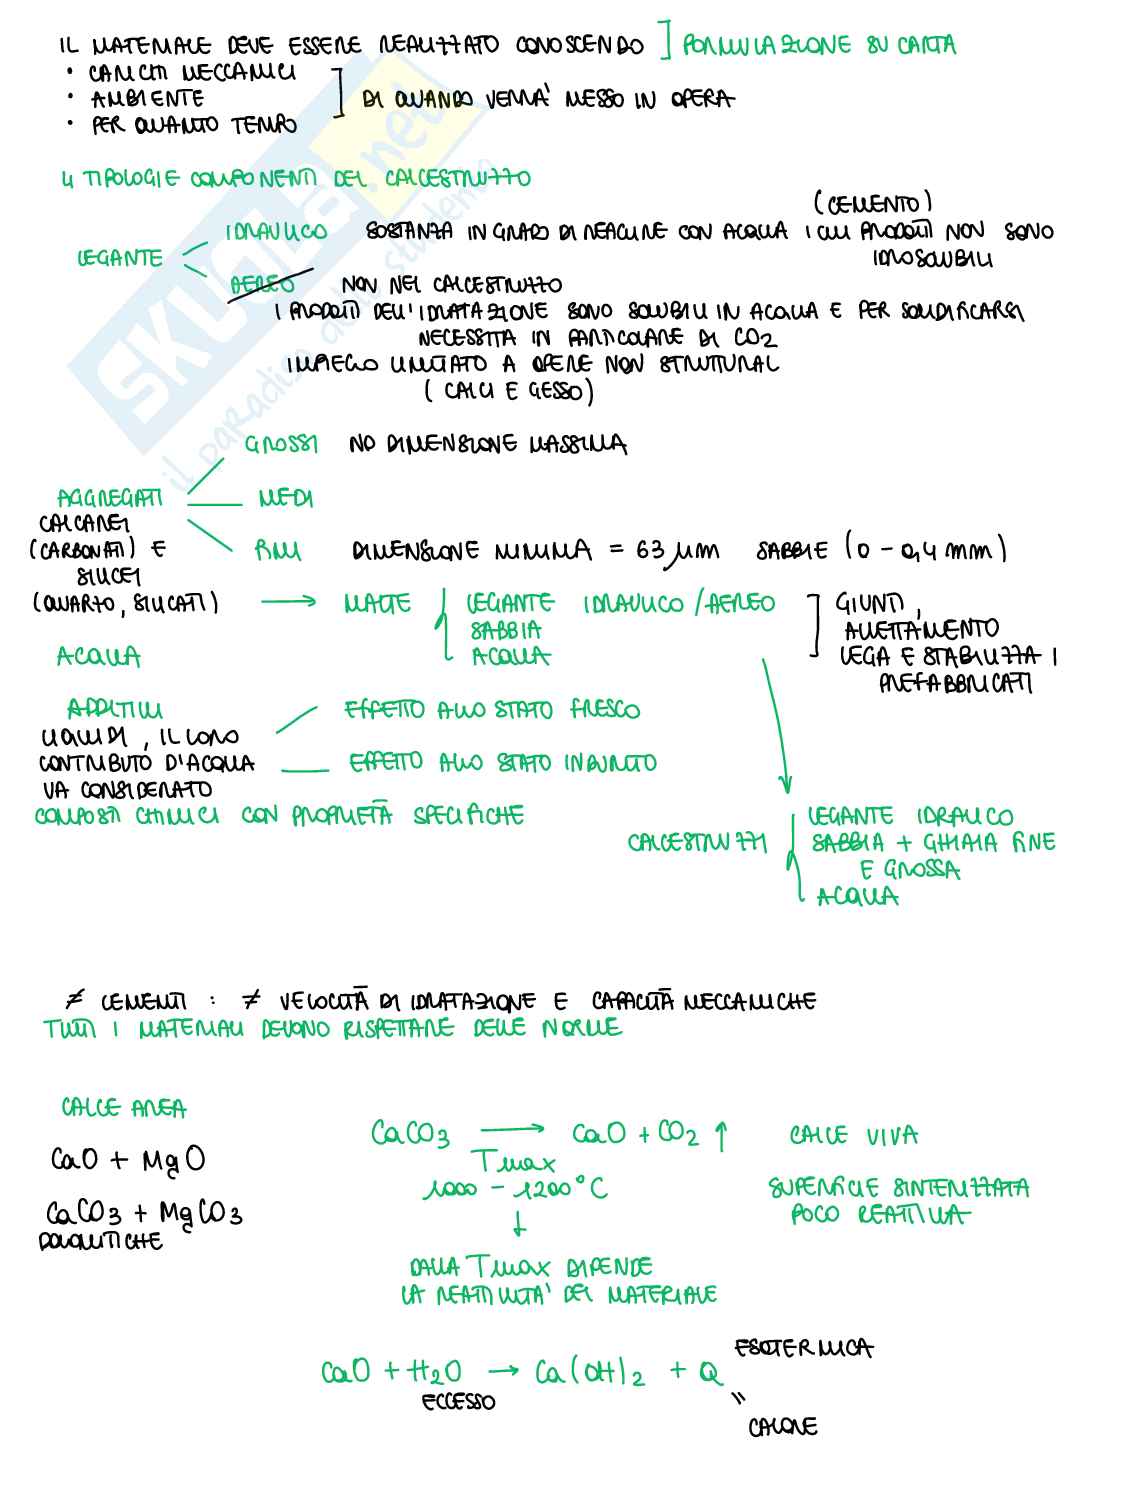 IL MATERIALE DEVE ESSERE REALIZZATO CONOSCENDO ] FORMULAZIONE SU CARTA
• CARICHI MECCANICI
• AMBIENTE ] DI QUANDO VERRA' MESSO IN OPERA
• PER QUANTO TEMPO
4 TIPOLOGIE COMPONENTI DEL CALCESTRUZZO
(CEMENTO)
IDRAULICO SOSTANZA IN GRADO DI REAGIRE CON ACQUA I CUI PRODOTTI NON SONO
LEGANTE IDROSOLUBILI
AEREO NON NEL CALCESTRUZZO
I PRODOTTI DELL'IDRATAZIONE SONO SOLUBILI IN ACQUA E PER SOLIDIFICARSI
NECESSITA IN PARTICOLARE DI CO2
IMPIEGO LIMITATO A OPERE NON STRUTTURALI
(CALCI E GESSO)
GROSSI NO DIMENSIONE MASSIMA
AGGREGATI MEDI
CALCAREI
(CARBONATI) E FINI DIMENSIONE MINIMA = 63 μm SABBIE (0 - 0,4 mm)
SILICEI
(QUARZO, SILICATI) → MALTE LEGANTE IDRAULICO/AEREO ] GIUNTI,
SABBIA ALLETTAMENTO
ACQUA ACQUA LEGA E STABILIZZA I
PREFABBRICATI
ADDITIVI EFFETTO ALLO STATO FRESCO
LIQUIDI, IL LORO
CONTRIBUTO D'ACQUA EFFETTO ALLO STATO INDURITO
VA CONSIDERATO
COMPOSTI CHIMICI CON PROPRIETÀ SPECIFICHE
LEGANTE IDRAULICO
CALCESTRUZZI SABBIA + GHIAIA FINE
E GROSSA
ACQUA
≠ CEMENTI : ≠ VELOCITÀ DI IDRATAZIONE E CAPACITÀ MECCANICHE
TUTTI I MATERIALI DEVONO RISPETTARE DELLE NORME
CALCE AREA
CaCO3 → CaO + CO2 ↑ CALCE VIVA
CaO + MgO Tmax
1000 - 1200°C SUPERFICIE SINTERIZZATA
CaCO3 + MgCO3 POCO REATTIVA
DOLOMITICHE
DALLA Tmax DIPENDE
LA REATTIVITA' DEL MATERIALE
ESOTERMICA
CaO + H2O → Ca(OH)2 + Q
ECCESSO "
CALORE
SKUOLA.net
il paradiso dello studente